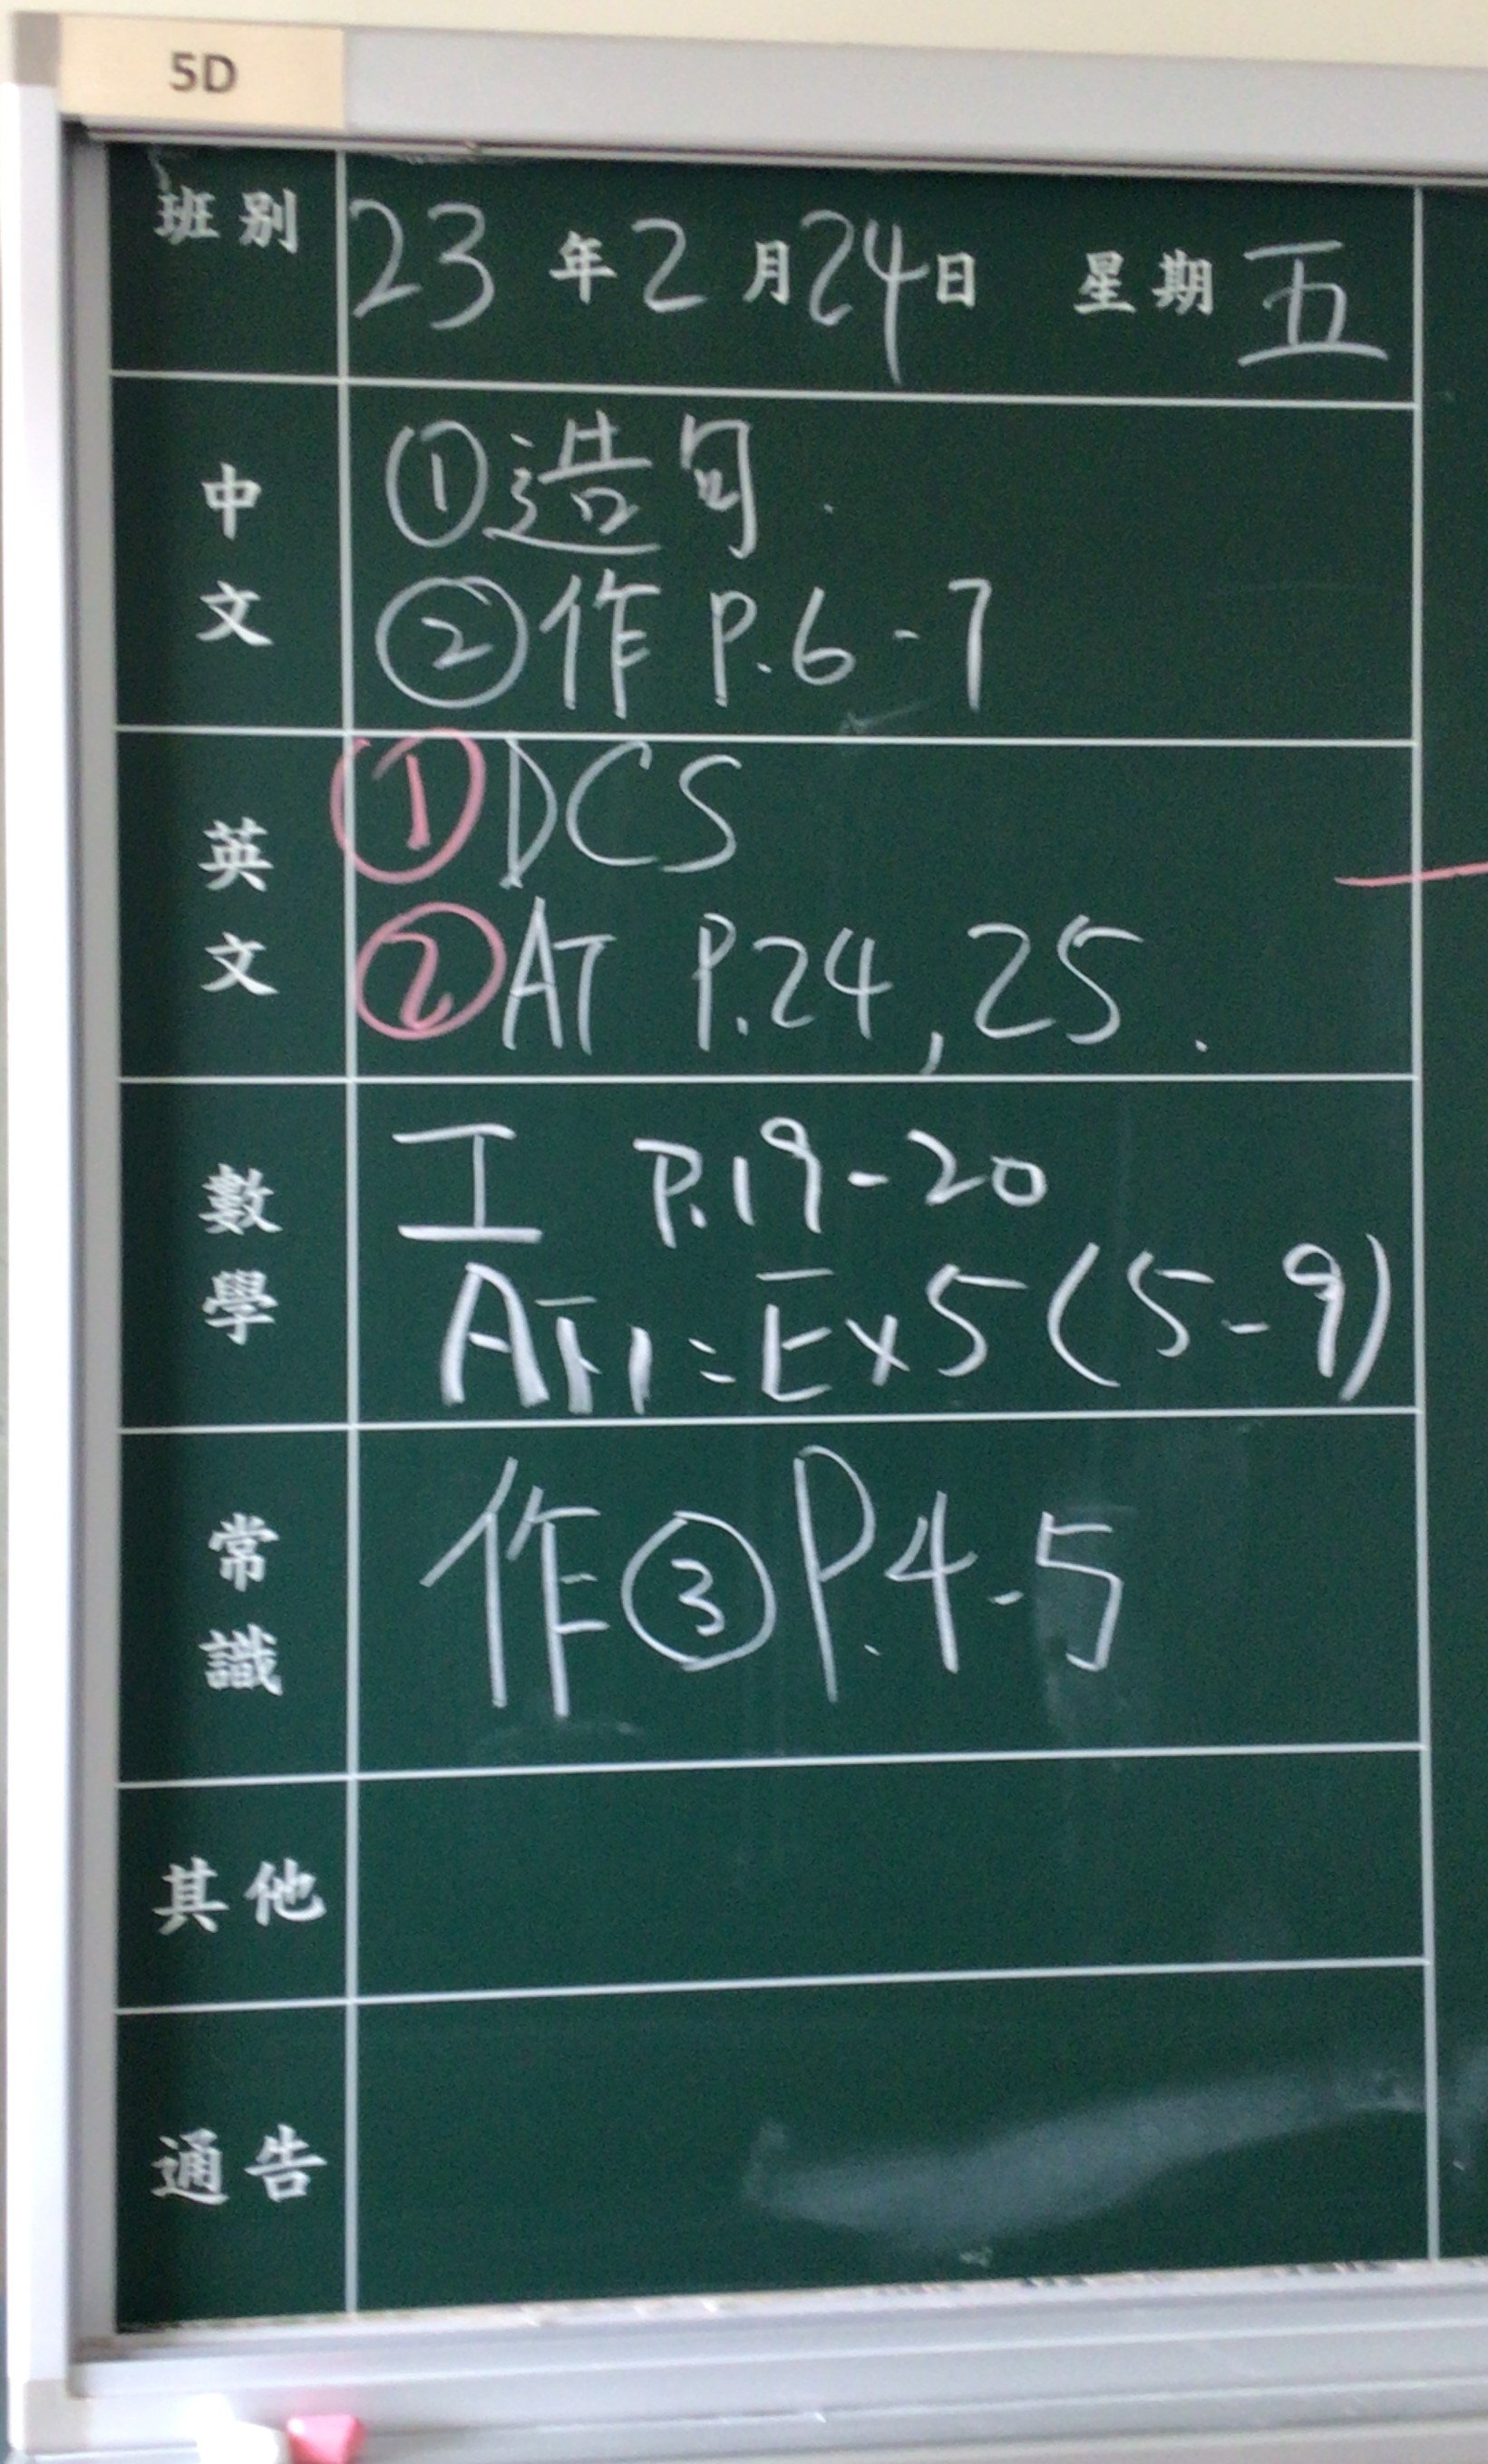 5D
班別 23年2月24日 星期五
中文
①造句.
②作 P.6-7
英文
①DCS
②AT P.24, 25.
數學
工 P.19-20
A簿: Ex5(5-9)
常識
作③P.4-5
其他
通告